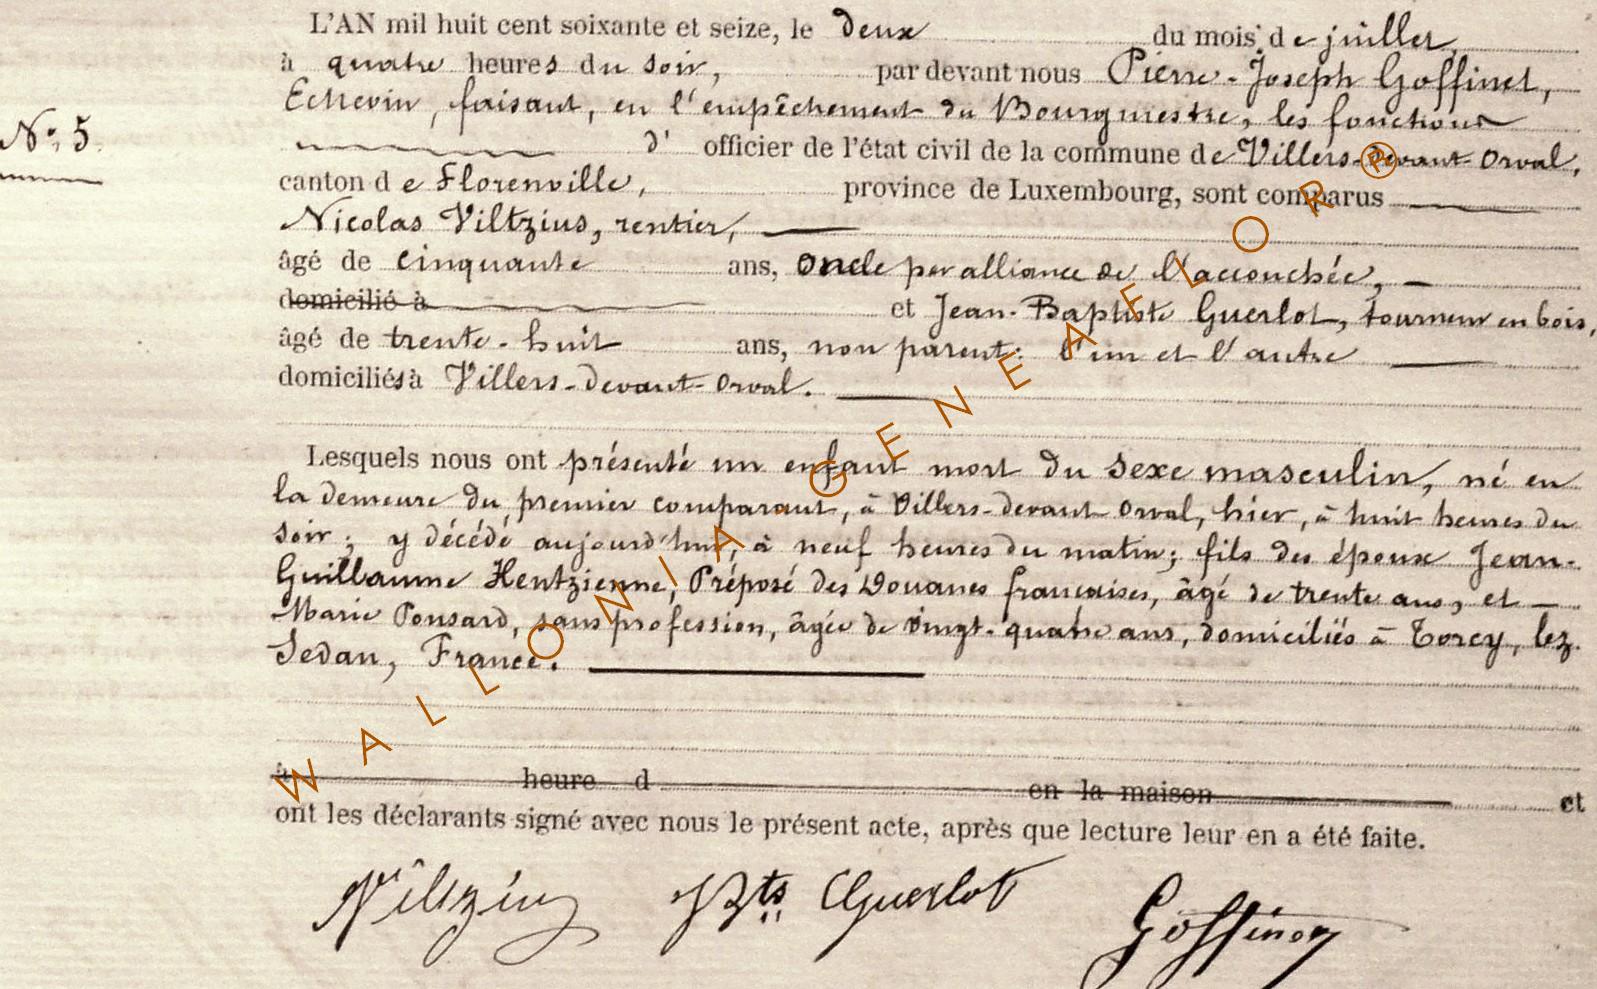 L'AN mil huit cent soixante et seize, le deux du mois de juillet,
à quatre heures du soir, par devant nous Pierre-Joseph Goffinet,
Echevin, faisant, en l'empêchement du Bourgmestre, les fonctions
N° 5.
d' officier de l'état civil de la commune de Villers-devant-Orval,
canton de Florenville, province de Luxembourg, sont comparus
Nicolas Viltzius, rentier,
âgé de cinquante ans, oncle par alliance de l'accouchée,
domicilié à et Jean-Baptiste Guerlot, tourneur en bois,
âgé de trente-huit ans, non parent; l'un et l'autre
domiciliés à Villers-devant-Orval.
Lesquels nous ont présenté un enfant mort du sexe masculin, né en
la demeure du premier comparant, à Villers-devant Orval, hier, à huit heures du
soir; y décédé aujourd'hui, à neuf heures du matin; fils des époux Jean-
Guillaume Hentzienne, Préposé des Douanes françaises, âgé de trente ans, et
Marie Ponsard, sans profession, âgée de vingt-quatre ans, domiciliés à Torcy, lez-
Sedan, France.
à heure d en la maison et
ont les déclarants signé avec nous le présent acte, après que lecture leur en a été faite.
Viltzius JBte Guerlot Goffinet
WALLONIA-GENEAFLOR R ®